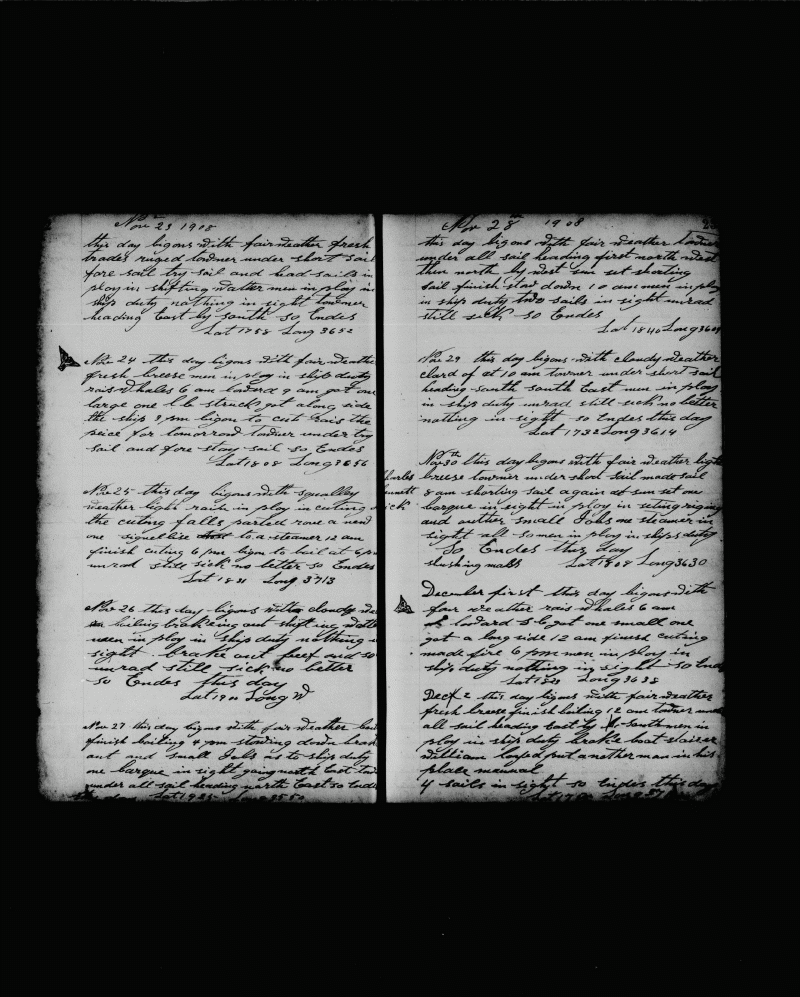 Nov 23 1908
this day bigons with fair weather fresh
trades riged towner under short sail
fore sail try sail and head sails in
ploy in shifting watter men in ploy in
ship duty nothing in sight towner
heading East by south so Endes
Lat 1758 Long 3652
Nov 24 this day bigons with fair weather
fresh breeze men in ploy in ship duty
rais whales 6 am lowerd 9 am got one
large one L b struck got along side
the ship 3 pm bigon to cut rais the
peice for tomorrow towner under try
sail and fore stay sail so Endes
Lat 1808 Long 3656
Nov 25 this day bigons with squalley
weather light rain in ploy in cuting
the cuting falls parted rove a new
one to a steamer 12 am
finish cuting 6 pm bigon to boil at 6 pm
unrad still sick no better so Endes
Lat 1831 Long 3713
Nov 26 this day bigons with cloudy
boiling brakeing out shifting watter
men in ploy in ship duty nothing in
sight brake out beef and
unrad still sick no better
so Endes this day
Lat 19 Long W
Nov 27 this day bigons with fair weather
finish boiling 4 pm stowing down brak
out and small Jobs as to ship duty
one barque in sight going north East
under all sail heading north East so Endes
Lat 1925 Long 3550
Nov 28th 1908
this day bigons with fair weather towner
under all sail heading first north west
then north by west sun set shorting
sail finish stow down 10 am men in ploy
in ship duty two sails in sight unrad
still sick so Endes
Lat 1840 Long 3604
Nov 29 this day bigons with cloudy weather
clard of at 10 am towner under short sail
heading south south East men in ploy
in ship duty unrad still sick no better
nothing in sight so Endes this day
Lat 1732 Long 3614
Nov 30th this day bigons with fair weather light
Charles
breeze towner under short sail made sail
8 am shorting sail again at sun set one
barque in sight in ploy in seting riging
and outher small Jobs one steamer in
sight all so men in ploy in ships duty
So Endes this day
slushing masts Lat 1808 Long 3630
December first this day bigons with
fair weather rais whales 6 am
lowerd S b got one small one
got a long side 12 am finish cuting
made fire 6 pm men in ploy in
ship duty nothing in sight so Endes
Lat Long 3638
Dec 2 this day bigons with fair weather
fresh breeze finish boiling 12 am towner under
all sail heading East by South men in
ploy in ship duty broke boat stairer
William put another man in his
place
4 sails in sight so Endes this day